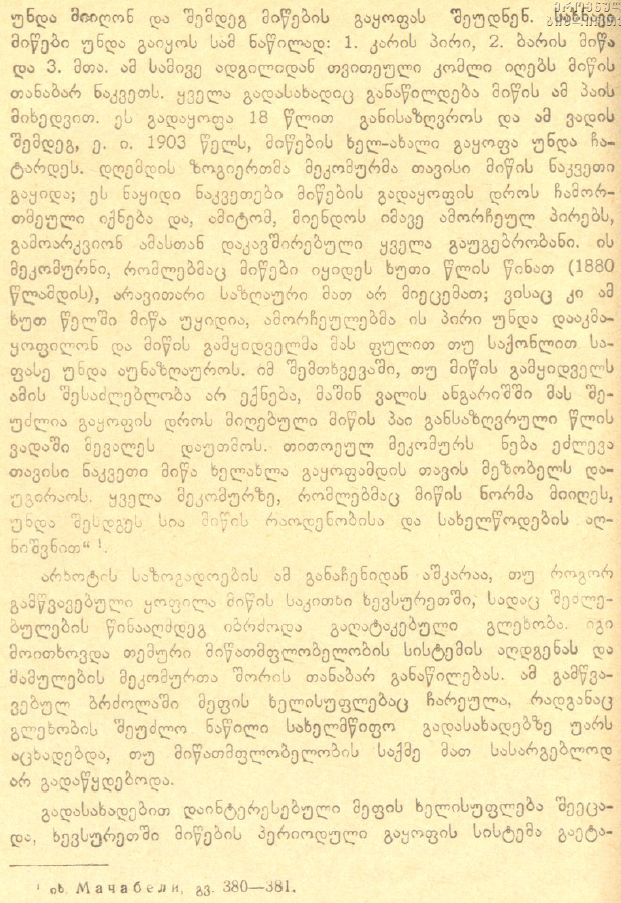 უნდა მიიღონ და შემდეგ მიწების გაყოფას შეუდნენ. სახნავი
მიწები უნდა გაიყოს სამ ნაწილად: 1. კარის პირი, 2. ბარის მიწა
და 3. მთა. ამ სამივე ადგილიდან თვითეული კომლი იღებს მიწის
თანაბარ ნაკვეთს. ყველა გადასახადიც განაწილდება მიწის ამ პაის
მიხედვით. ეს გადაყოფა 18 წლით განისაზღვროს და ამ ვადის
შემდეგ, ე. ი. 1903 წელს, მიწების ხელ-ახალი გაყოფა უნდა ჩა-
ტარდეს. დღემდის ზოგიერთმა მეკომურმა თავისი მიწის ნაკვეთი
გაყიდა; ეს ნაყიდი ნაკვეთები მიწების გადაყოფის დროს ჩამორ-
თმეული იქნება და, ამიტომ, მიენდოს იმავე ამორჩეულ პირებს,
გამოარკვიონ ამასთან დაკავშირებული ყველა გაუგებრობანი. ის
მეკომურნი, რომლებმაც მიწები იყიდეს ხუთი წლის წინათ (1880
წლამდის), არავითარი საზღაური მათ არ მიეცემათ; ვისაც კი ამ
ხუთ წელში მიწა უყიდია, ამორჩეულებმა ის პირი უნდა დააკმა-
ყოფილონ და მიწის გამყიდველმა მას ფულით თუ საქონლით სა-
ფასე უნდა აუნაზღაუროს. იმ შემთხვევაში, თუ მიწის გამყიდველს
ამის შესაძლებლობა არ ექნება, მაშინ ვალის ანგარიშში მას შე-
უძლია გაყოფის დროს მიღებული მიწის პაი განსაზღვრული წლის
ვადაში მევალეს დაუთმოს. თითოეულ მეკომურს ნება ეძლევა
თავისი ნაკვეთი მიწა ხელახლა გაყოფამდის თავის მეზობელს და-
უგირაოს. ყველა მეკომურზე, რომლებმაც მიწის ნორმა მიიღეს,
უნდა შესდგეს სია მიწის რაოდენობისა და სახელწოდების აღ-
ნიშვნით“ ¹.
არხოტის საზოგადოების ამ განაჩენიდან აშკარაა, თუ როგორ
გამწვავებული ყოფილა მიწის საკითხი ხევსურეთში, სადაც შეძლე-
ბულების წინააღმდეგ იბრძოდა გაღატაკებული გლეხობა. იგი
მოითხოვდა თემური მიწათმფლობელობის სისტემის აღდგენას და
მამულების მეკომურთა შორის თანაბარ განაწილებას. ამ გამწვა-
ვებულ ბრძოლაში მეფის ხელისუფლებაც ჩარეულა, რადგანაც
გლეხობის შეუძლო ნაწილი სახელმწიფო გადასახადებზე უარს
აცხადებდა, თუ მიწათმფლობელობის საქმე მათ სასარგებლოდ
არ გადაწყდებოდა.
გადასახადებით დაინტერესებული მეფის ხელისუფლება შეეცა-
და, ხევსურეთში მიწების პერიოდული გაყოფის სისტემა გაეტა-
¹ იხ. Мачабели, გვ. 380—381.